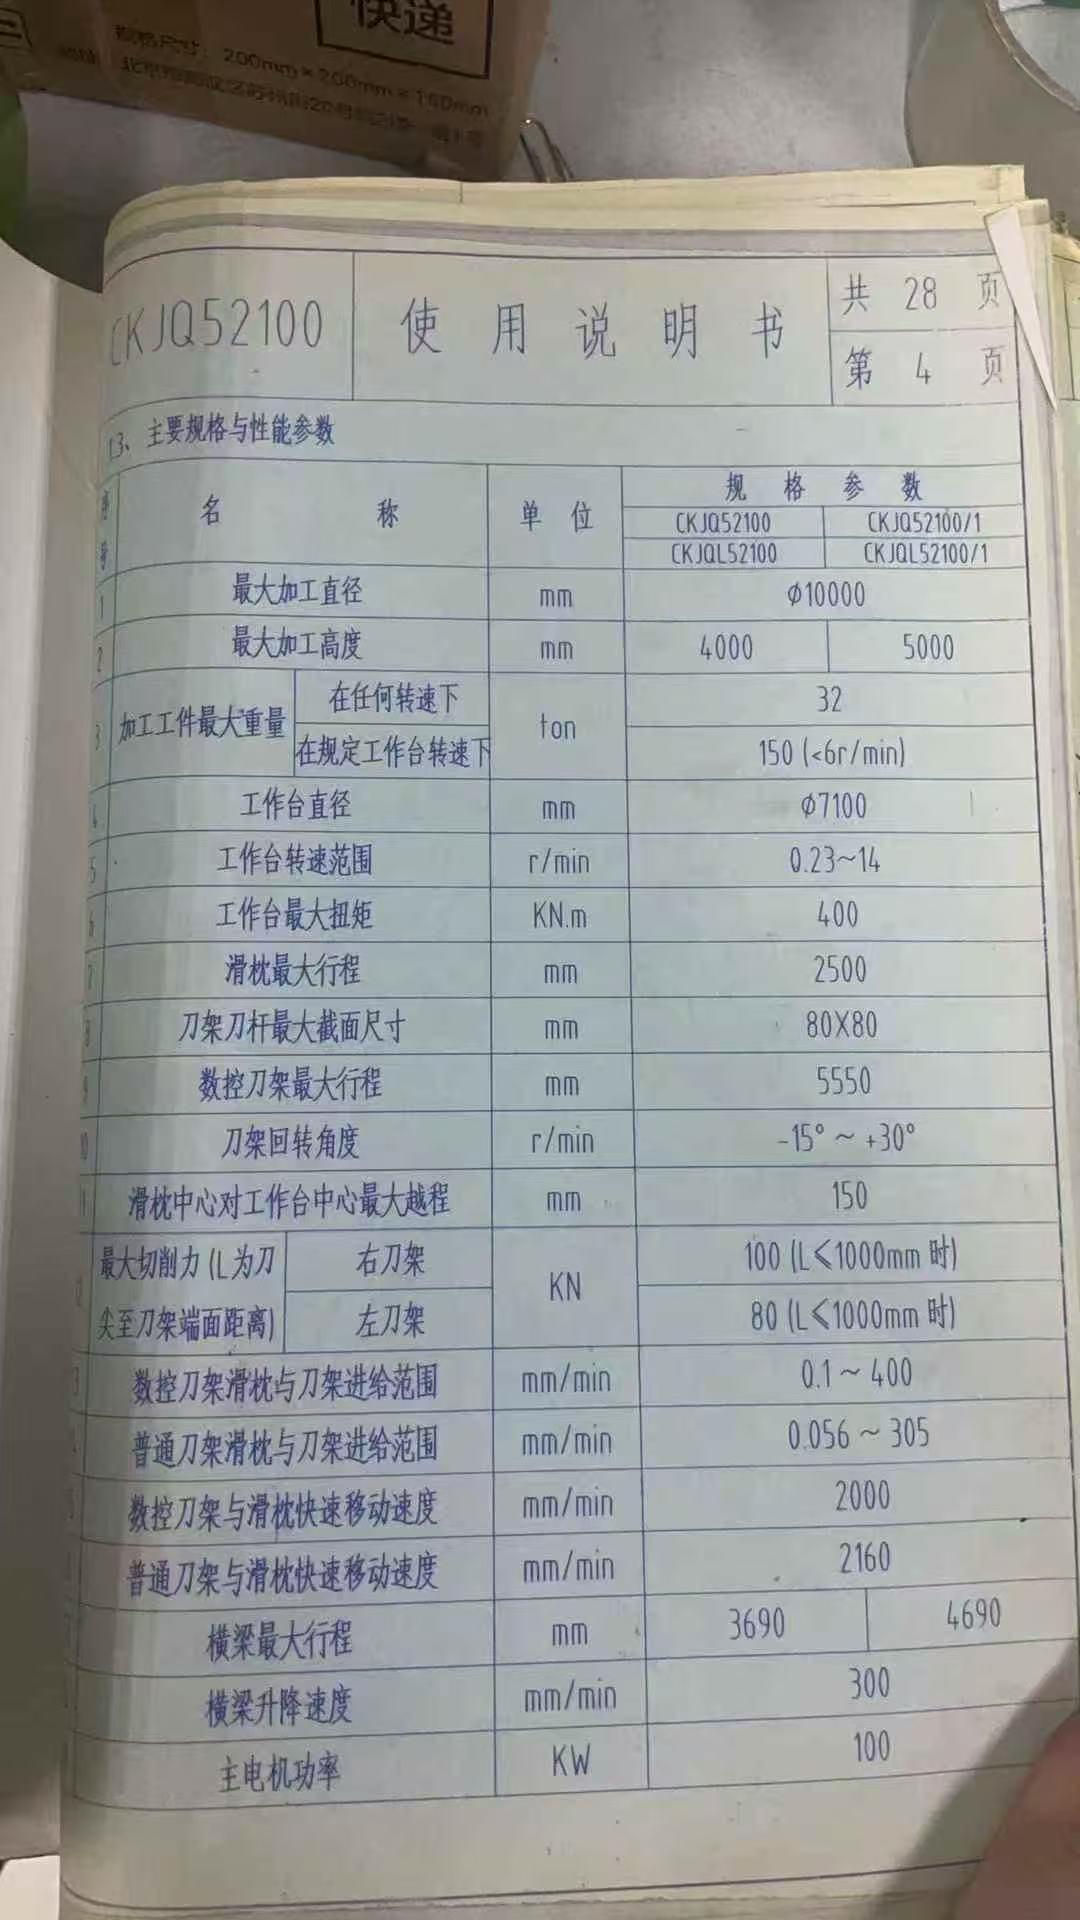 快递
规格尺寸：200mm×200mm×160mm
CKJQ52100 使用说明书 共 28 页
第 4 页
1.3、主要规格与性能参数
序号 名称 单位 规格参数
CKJQ52100 CKJQ52100/1
CKJQL52100 CKJQL52100/1
1 最大加工直径 mm Φ10000
2 最大加工高度 mm 4000 5000
3 加工工件最大重量 在任何转速下 ton 32
在规定工作台转速下 150 (<6r/min)
4 工作台直径 mm Φ7100
5 工作台转速范围 r/min 0.23~14
6 工作台最大扭矩 KN.m 400
7 滑枕最大行程 mm 2500
8 刀架刀杆最大截面尺寸 mm 80X80
9 数控刀架最大行程 mm 5550
10 刀架回转角度 r/min -15°~+30°
11 滑枕中心对工作台中心最大越程 mm 150
2 最大切削力(L为刀尖至刀架端面距离) 右刀架 KN 100 (L≤1000mm 时)
左刀架 80 (L≤1000mm 时)
3 数控刀架滑枕与刀架进给范围 mm/min 0.1~400
普通刀架滑枕与刀架进给范围 mm/min 0.056~305
数控刀架与滑枕快速移动速度 mm/min 2000
普通刀架与滑枕快速移动速度 mm/min 2160
横梁最大行程 mm 3690 4690
横梁升降速度 mm/min 300
主电机功率 KW 100